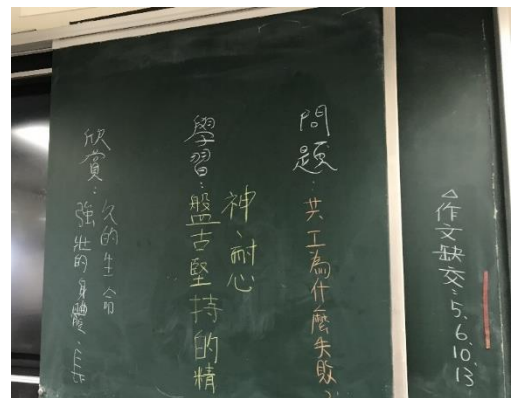 △作文缺交:5.6.10.13
問題:共工為什麼失敗
學習:盤古堅持的精
神、耐心
欣賞:強壯的身體、長
久的生命